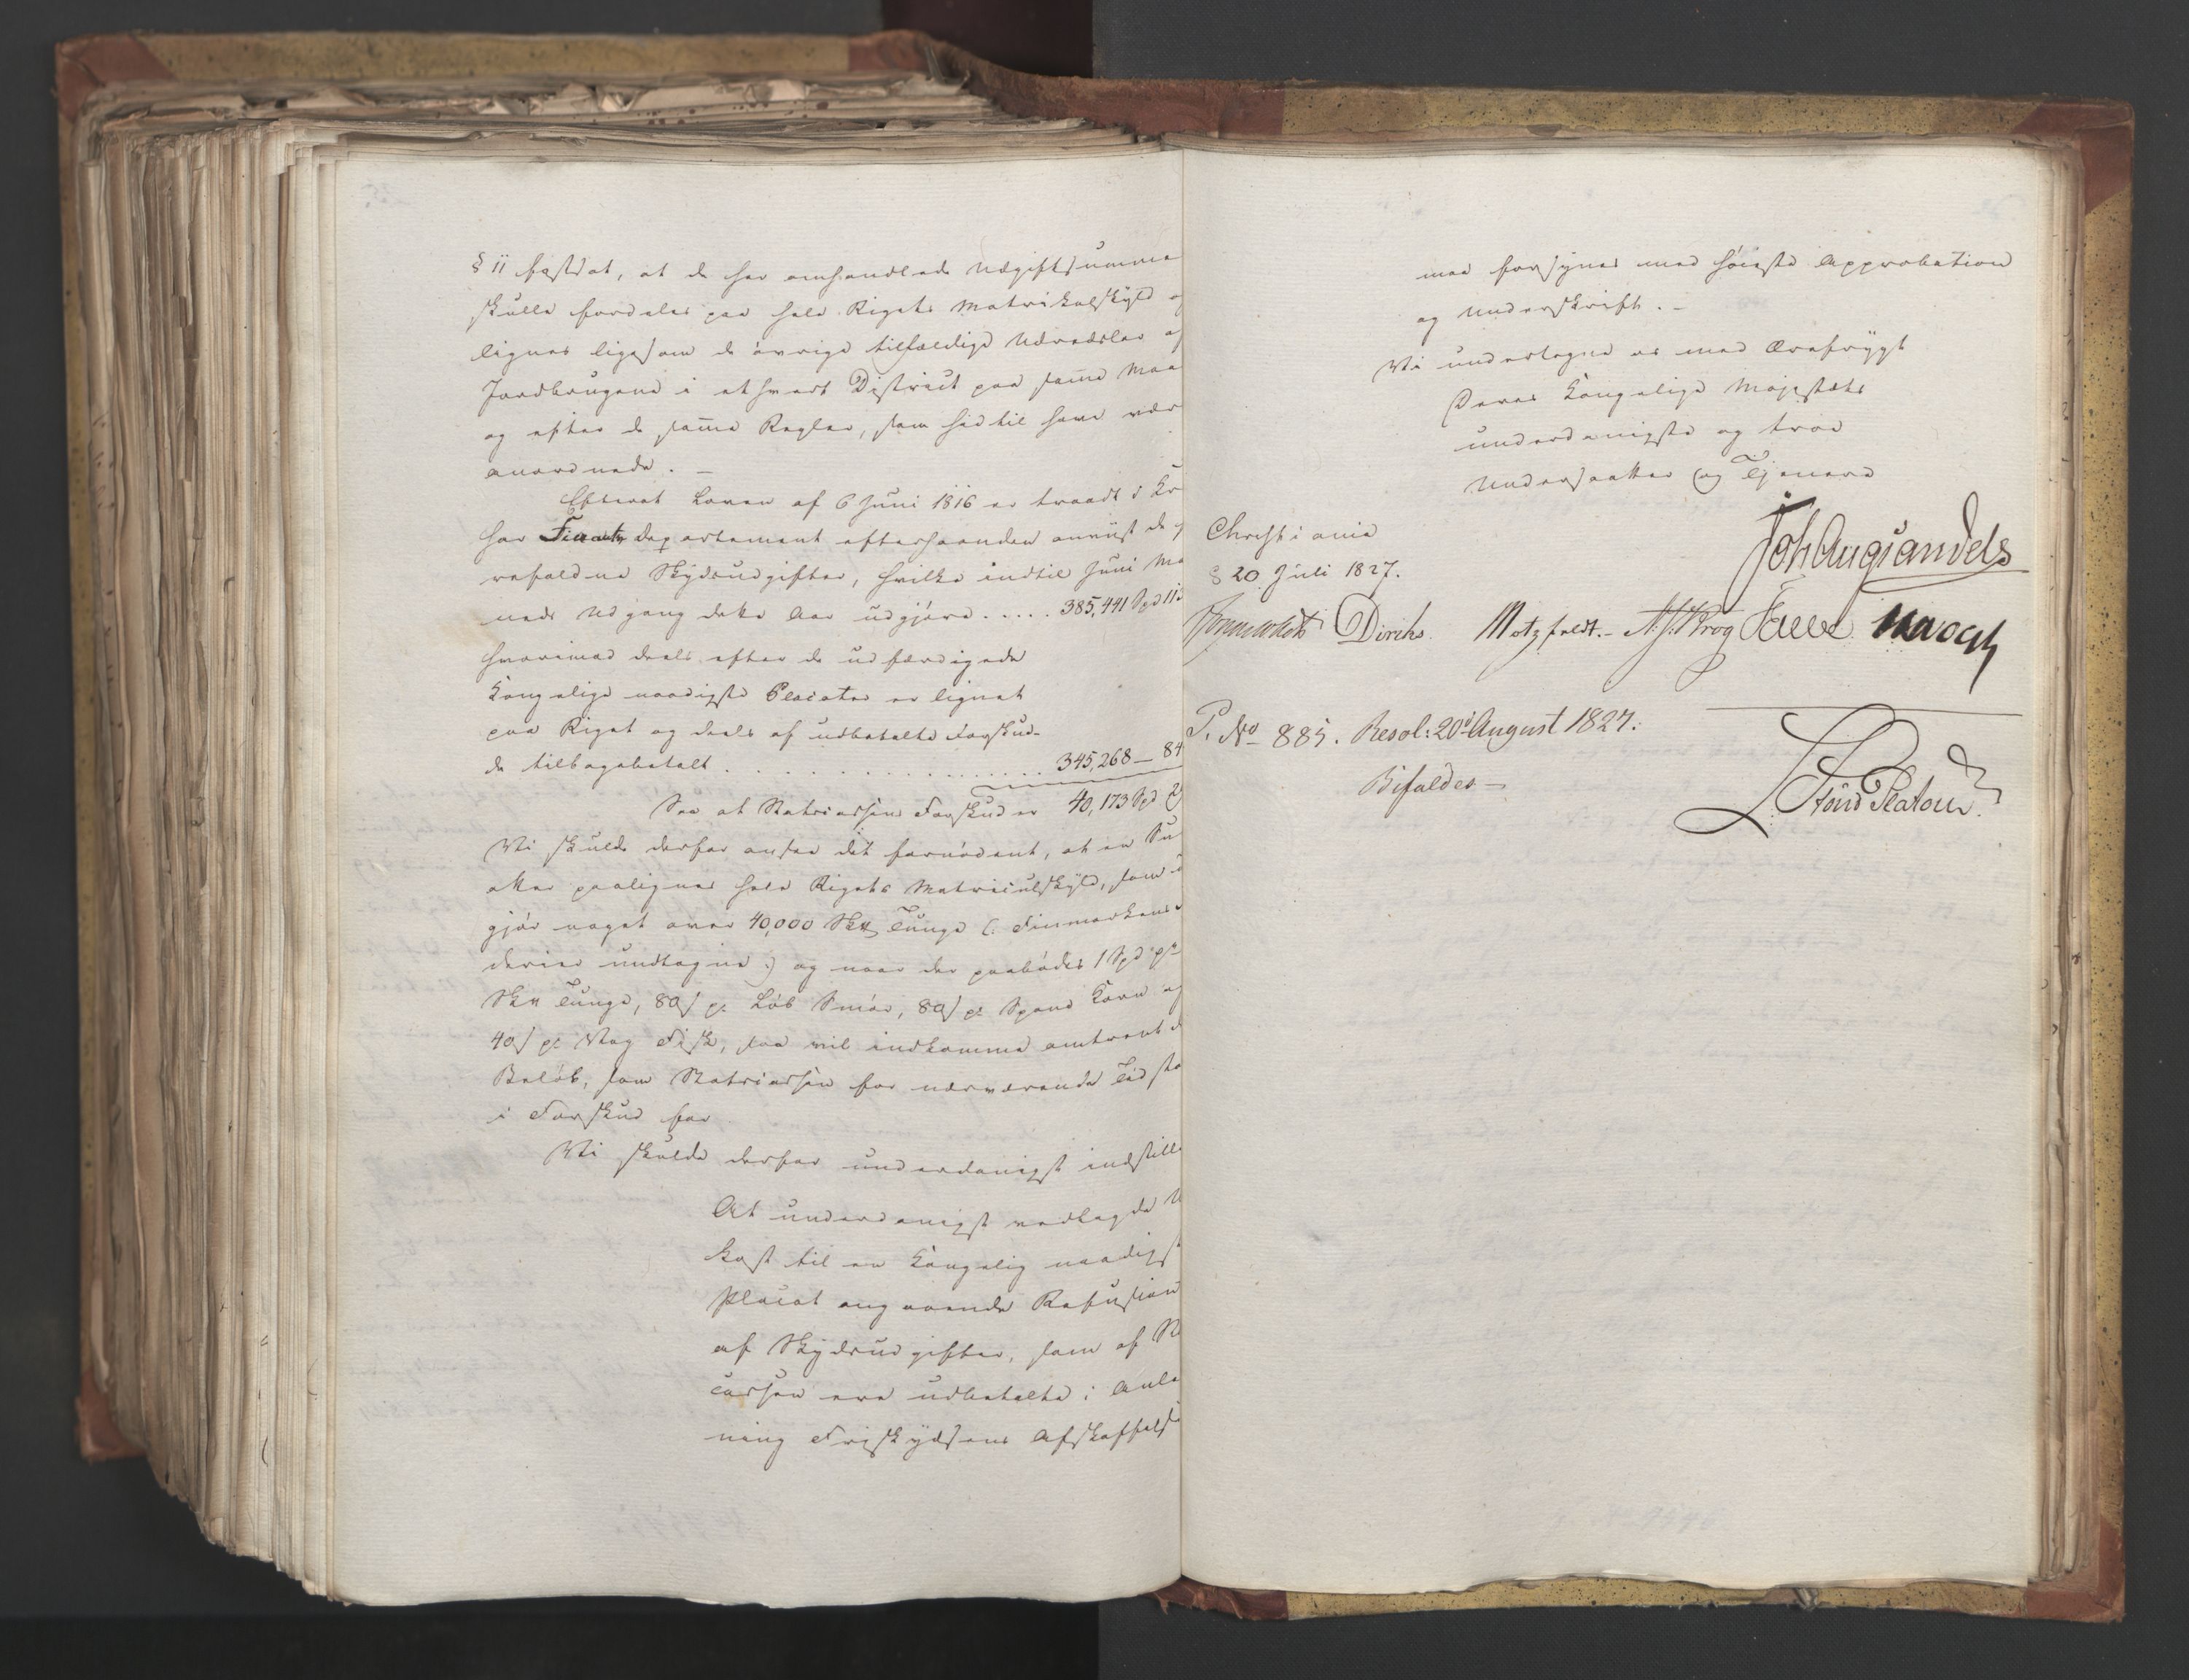 § 11 fastsat, at de her omhandlede Udgiftsumme
skulle fordeles paa hele Rigets Matrikulskyld og
lignes ligesom de øvrige tilfældige Udredsler af
Jordbrugene i ethvert District paa samme Maa
og efter de samme Regler, som hidtil have vær
anordnede. –
Efterat Loven af 6 Juni 1816 er traadt i Kr
har Finants departement efterhaanden anviist de
refaldne Skydsudgifter, hvilke indtil Juni Ma
neds Udgang dette Aar udgjøre ..... 385,441 Spd 11
hvorimod deels efter de udfærdigede
Kongelige naadigste Placater er lignet
paa Riget og deels af udbetalte Forskud-
de tilbagebetalt ................ 345,268 – 84
Saa at Statscassens Forskud er 40,173 Spd
Vi skulde derfor ansee det fornødent, at en Su
atter paalignes hele Rigets Matriculskyld, som u
gjør noget over 40,000 Sk℔ Tunge (: Finmarkens
derier undtagne :) og naar der paabødes 1 Spd pr
Sk℔ Tunge, 80 s pr Løb Smør, 80 s pr Spand Korn og
40 s pr Vog Fisk, saa vil indkomme omtrent d
Beløb, som Statscassen for nærværende Tid sta
i Forskud for.
Vi skulde derfor underdanigst indstille
At underdanigst vedlagde U
kast til en Kongelig naadigst
Placat angaaende Refusion
af Skydsudgifter, som af St
cassen ere udbetalte i Anle
ning Friskydsens Afskaffelse
maa forsynes med høieste Approbation
og Underskrift. –
Vi undertegne os med Ærefrygt
Deres Kongelige Majestæts
underdanigste og troe
Undersaatter og Tjenere
Christiania
d 20 Juli 1827.
Joh Aug Sandels
Sommerhielm Diriks. Motzfeldt. – A. S. Krog Fasting
P. No 885. Resol: 20 August 1827:
Bifaldes –
Frans Platou.